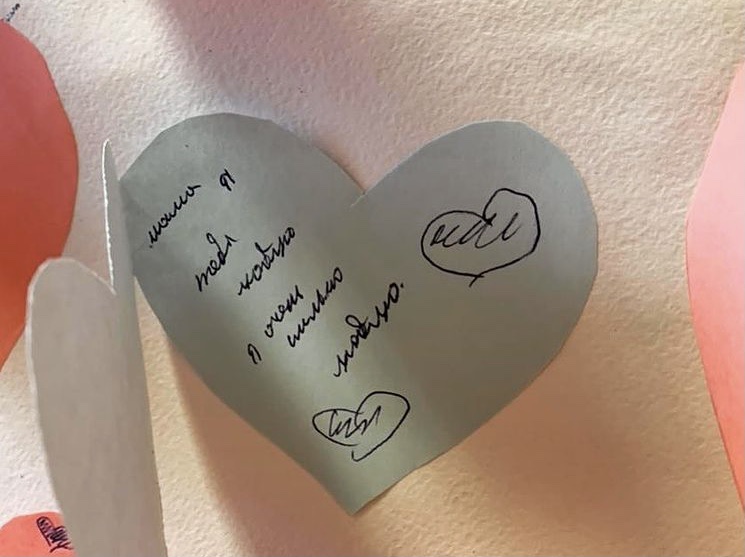 мама я
тебя
люблю
я очень
сильно
люблю.